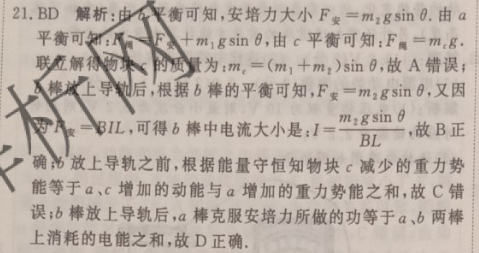 21. BD 解析:由 b 平衡可知,安培力大小 F安=m₂gsin θ. 由 a
平衡可知:F绳=F安+m₁gsin θ,由 c 平衡可知:F绳=mcg.
联立解得物块 c 的质量为:mc=(m₁+m₂)sin θ,故 A 错误;
b 棒放上导轨后,根据 b 棒的平衡可知,F安=m₂gsin θ,又因
为 F安=BIL,可得 b 棒中电流大小是:I=m₂gsin θ/BL,故 B 正
确;b 放上导轨之前,根据能量守恒知物块 c 减少的重力势
能等于 a、c 增加的动能与 a 增加的重力势能之和,故 C 错
误;b 棒放上导轨后,a 棒克服安培力所做的功等于 a、b 两棒
上消耗的电能之和,故 D 正确.
析网